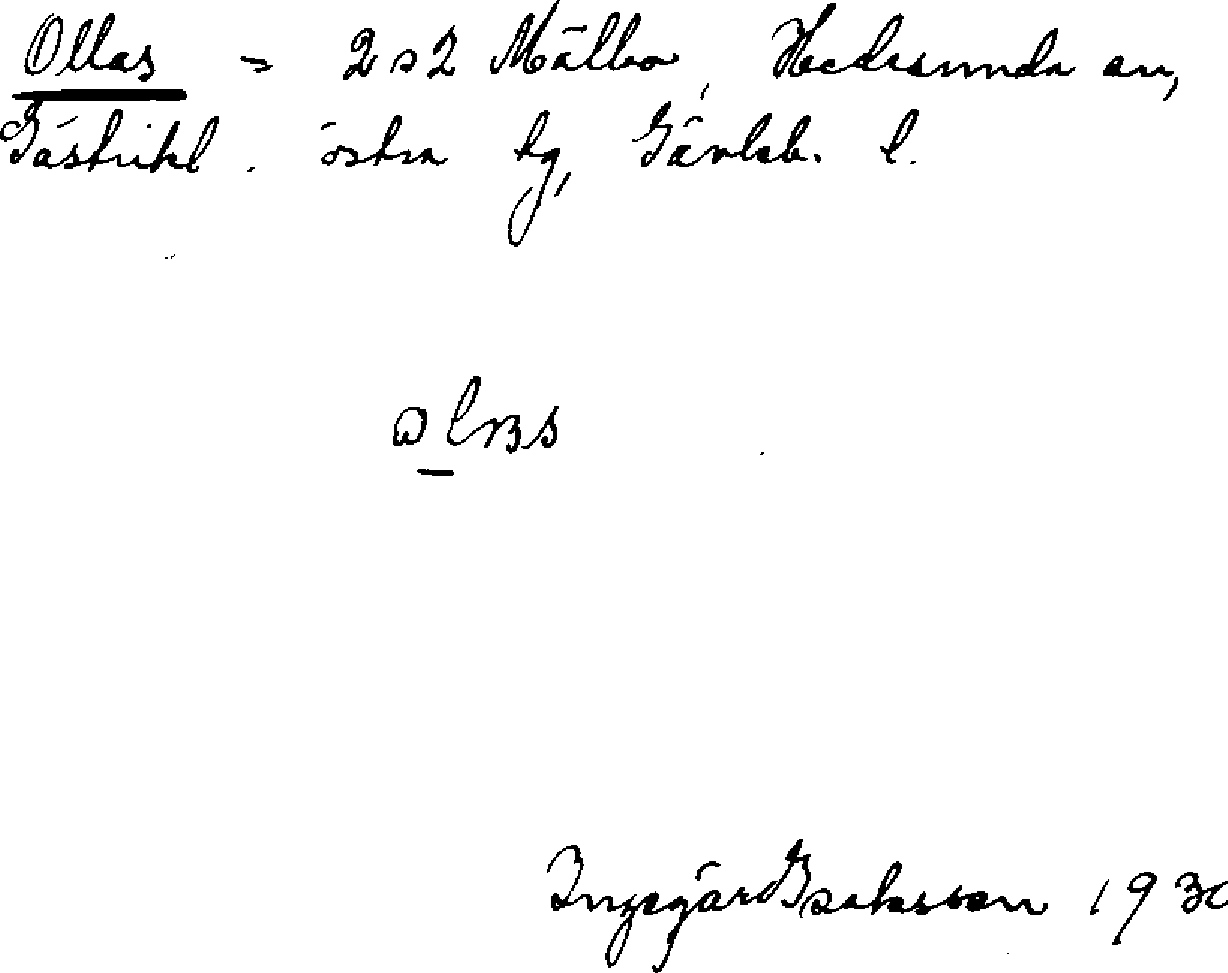 Ollas = 2 o 2 Mälbo, Hedesunda sn,
Gästrikl. östra tg, Gävleb. l.
Ingegärd Isaksson 193